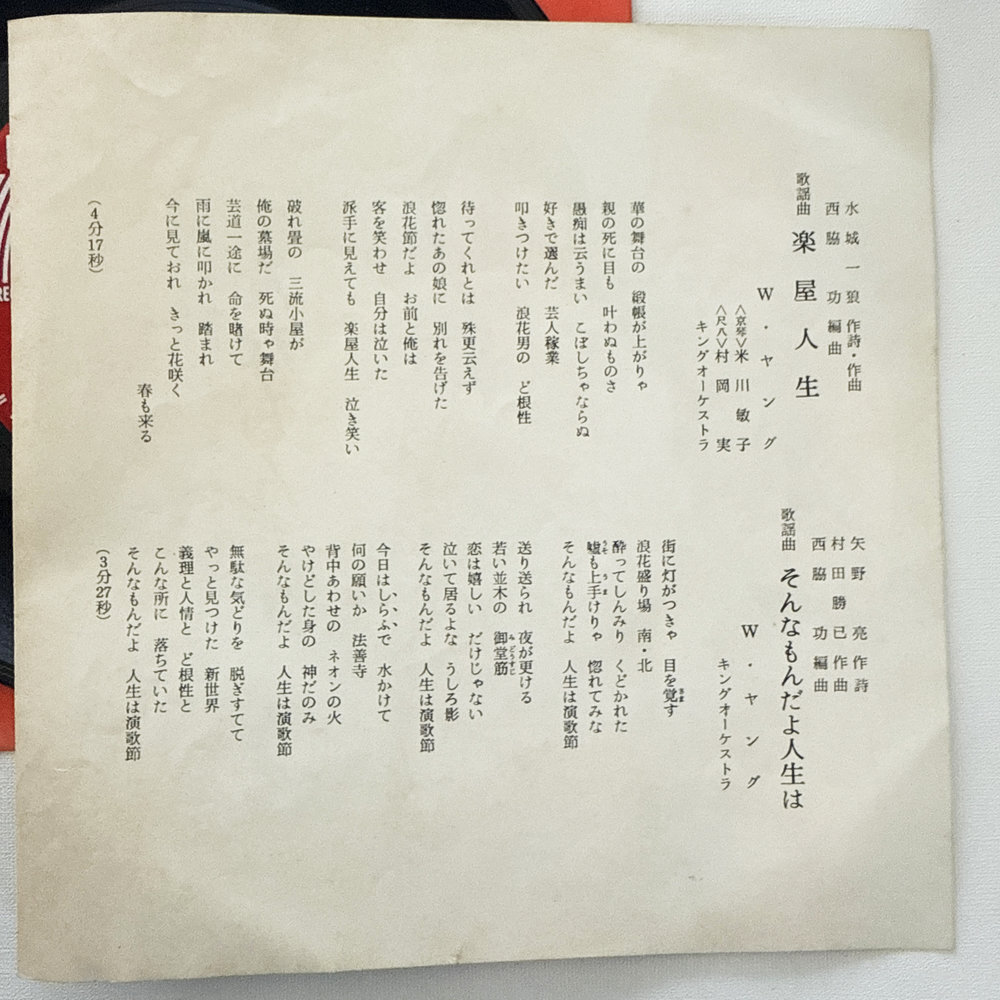 水城一狼 作詩・作曲
西脇 功 編曲
歌謡曲 楽屋人生
W・ヤング
〈京琴〉米川敏子
〈尺八〉村岡 実
キングオーケストラ
華の舞台の 緞帳が上がりゃ
親の死に目も 叶わぬものさ
愚痴は云うまい こぼしちゃならぬ
好きで選んだ 芸人稼業
叩きつけたい 浪花男の ど根性
待ってくれとは 殊更云えず
惚れたあの娘に 別れを告げた
浪花節だよ お前と俺は
客を笑わせ 自分は泣いた
派手に見えても 楽屋人生 泣き笑い
破れ畳の 三流小屋が
俺の墓場だ 死ぬ時ゃ舞台
芸道一途に 命を賭けて
雨に嵐に叩かれ 踏まれ
今に見ておれ きっと花咲く
春も来る
(4分17秒)
矢野 亮 作詩
村田勝已 作曲
西脇 功 編曲
歌謡曲 そんなもんだよ人生は
W・ヤング
キングオーケストラ
街に灯がつきゃ 目を覚(さま)す
浪花盛り場 南・北
酔ってしんみり くどかれた
嘘(うそ)も上手(うま)けりゃ 惚れてみな
そんなもんだよ 人生は演歌節
送り送られ 夜が更ける
若い並木の 御堂筋(みどうすじ)
恋は嬉しい だけじゃない
泣いて居るよな うしろ影
そんなもんだよ 人生は演歌節
今日はしらふで 水かけて
何の願いか 法善寺
背中あわせの ネオンの火
やけどした身の 神だのみ
そんなもんだよ 人生は演歌節
無駄な気どりを 脱ぎすてて
やっと見つけた 新世界
義理と人情と ど根性と
こんな所に 落ちていた
そんなもんだよ 人生は演歌節
(3分27秒)